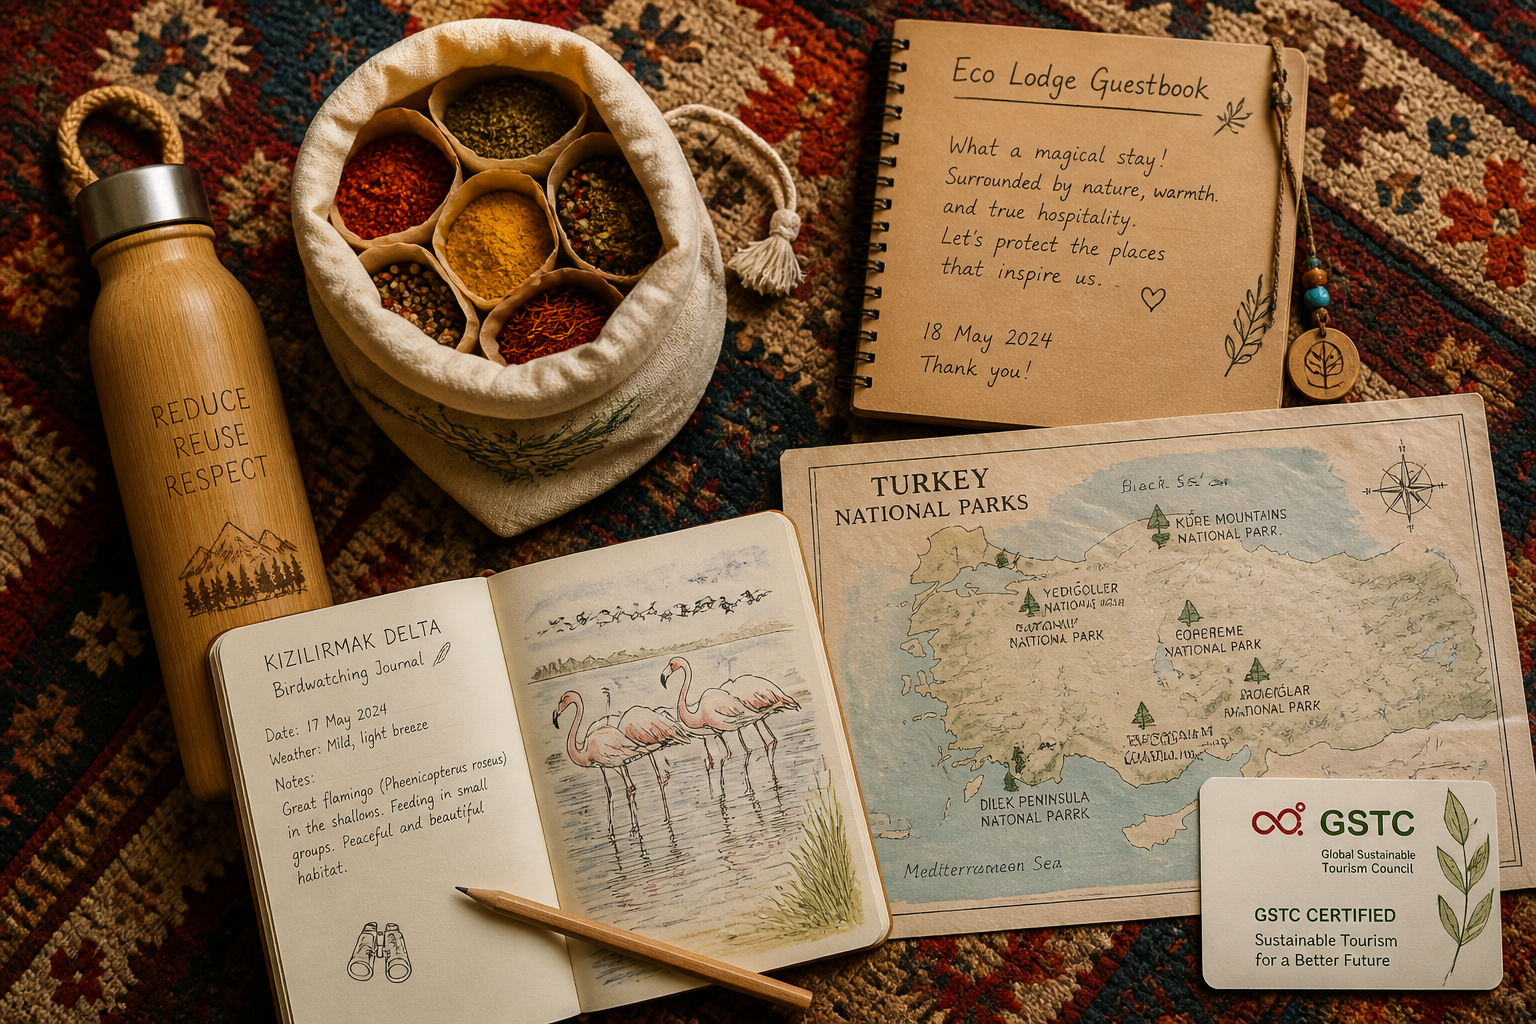 REDUCE
REUSE
RESPECT
Eco Lodge Guestbook
What a magical stay!
Surrounded by nature, warmth.
and true hospitality.
Let's protect the places
that inspire us.
18 May 2024
Thank you!
KIZILIRMAK DELTA
Birdwatching Journal
Date: 17 May 2024
Weather: Mild, light breeze
Notes:
Great flamingo (Pheenicopterus roseus)
in the shallows. Feeding in small
groups. Peaceful and beautiful
habitat.
TURKEY
NATIONAL PARKS
Black
KÜRE MOUNTAINS
NATIONAL PARK.
YEDİGÖLLER
NATIONAL PARK
NATIONAL PARK
NATIONAL PARK
DILEK PENINSULA
NATIONAL PARRK
Mediterranean Sea
GSTC
Global Sustainable
Tourism Council
GSTC CERTIFIED
Sustainable Tourism
for a Better Future